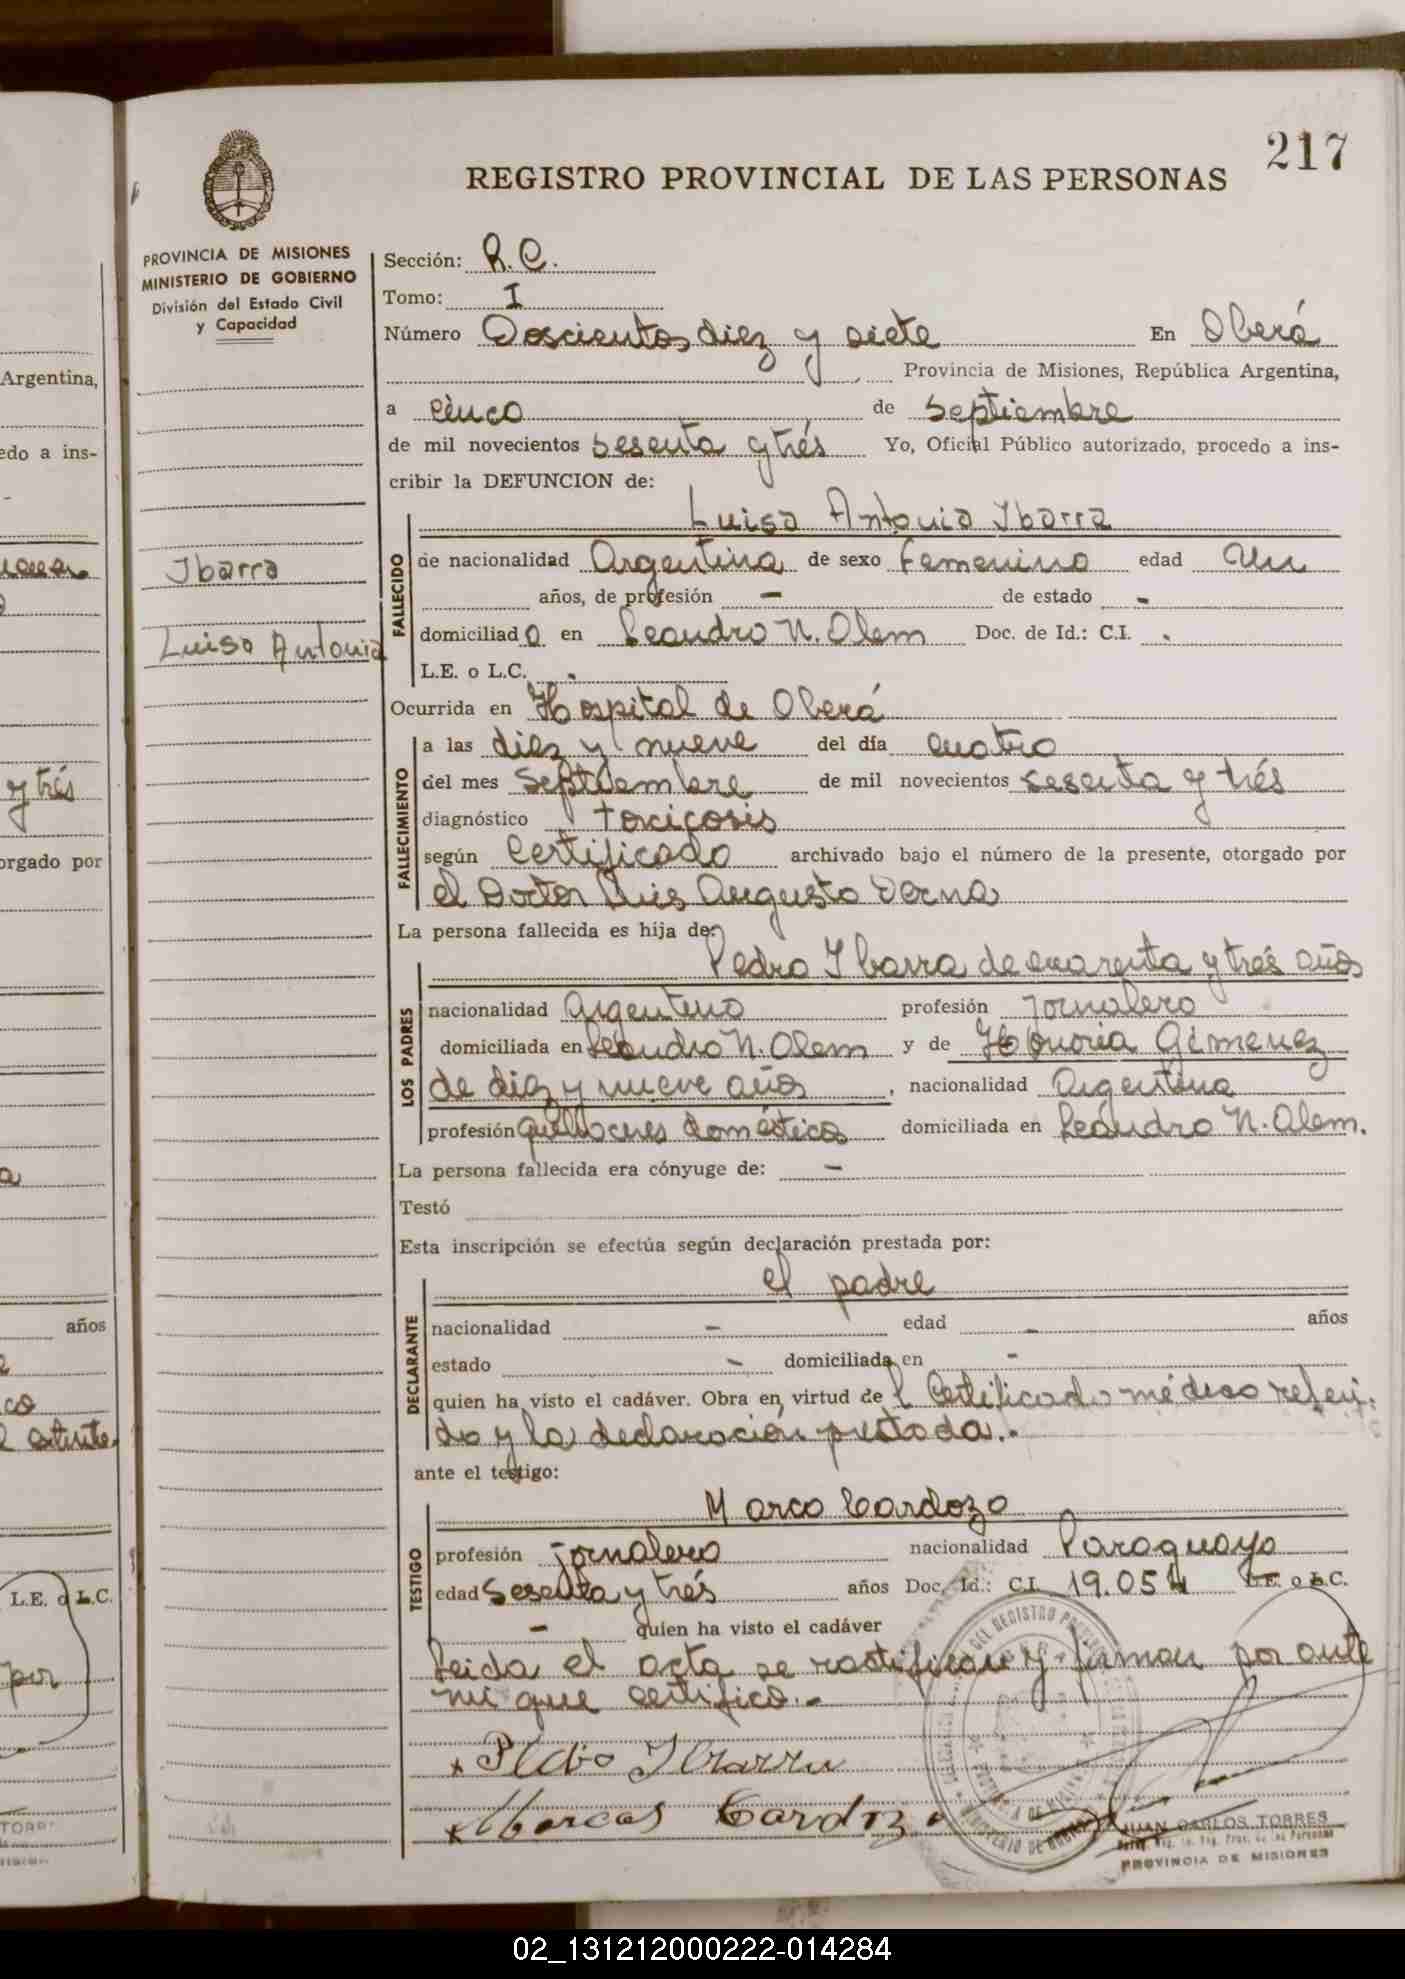 217
REGISTRO PROVINCIAL DE LAS PERSONAS
PROVINCIA DE MISIONES
MINISTERIO DE GOBIERNO
División del Estado Civil
y Capacidad
Ibarra
Luisa Antonia
Sección: R.C.
Tomo: I
Número Doscientos diez y siete En Oberá
Provincia de Misiones, República Argentina,
a cinco de Septiembre
de mil novecientos sesenta y trés Yo, Oficial Público autorizado, procedo a ins-
cribir la DEFUNCION de:
Luisa Antonia Ibarra
FALLECIDO
de nacionalidad Argentina de sexo femenino edad Un
años, de profesión - de estado -
domiciliada en Leandro N. Alem Doc. de Id.: C.I. .
L.E. o L.C. .
Ocurrida en Hospital de Oberá
FALLECIMIENTO
a las diez y nueve del día cuatro
del mes Septiembre de mil novecientos sesenta y trés
diagnóstico toxicosis
según Certificado archivado bajo el número de la presente, otorgado por
el Doctor Luis Augusto Derna
La persona fallecida es hija de:
Pedro Ibarra de cuarenta y trés años
LOS PADRES
nacionalidad Argentino profesión jornalero
domiciliada en Leandro N. Alem y de Honoria Gimenez
de diez y nueve años, nacionalidad Argentina
profesión quehaceres domésticos domiciliada en Leandro N. Alem.
La persona fallecida era cónyuge de: -
Testó
Esta inscripción se efectúa según declaración prestada por:
el padre
DECLARANTE
nacionalidad - edad - años
estado - domiciliada en -
quien ha visto el cadáver. Obra en virtud del Certificado médico referi-
do y la declaración prestada.-
ante el testigo:
Marco Cardozo
TESTIGO
profesión jornalero nacionalidad Paraguayo
edad Sesenta y trés años Doc. Id.: C.I. 19.054 L.E. o L.C.
- quien ha visto el cadáver
Leida el acta se ratifican y firman por ante
mi que certifico.-
x Pedro Ibarra
x Marcos Cardozo
JUAN CARLOS TORRES
PROVINCIA DE MISIONES
Argentina,
edo a ins-
y trés
orgado por
años
L.E. o L.C.
por
02_131212000222-014284